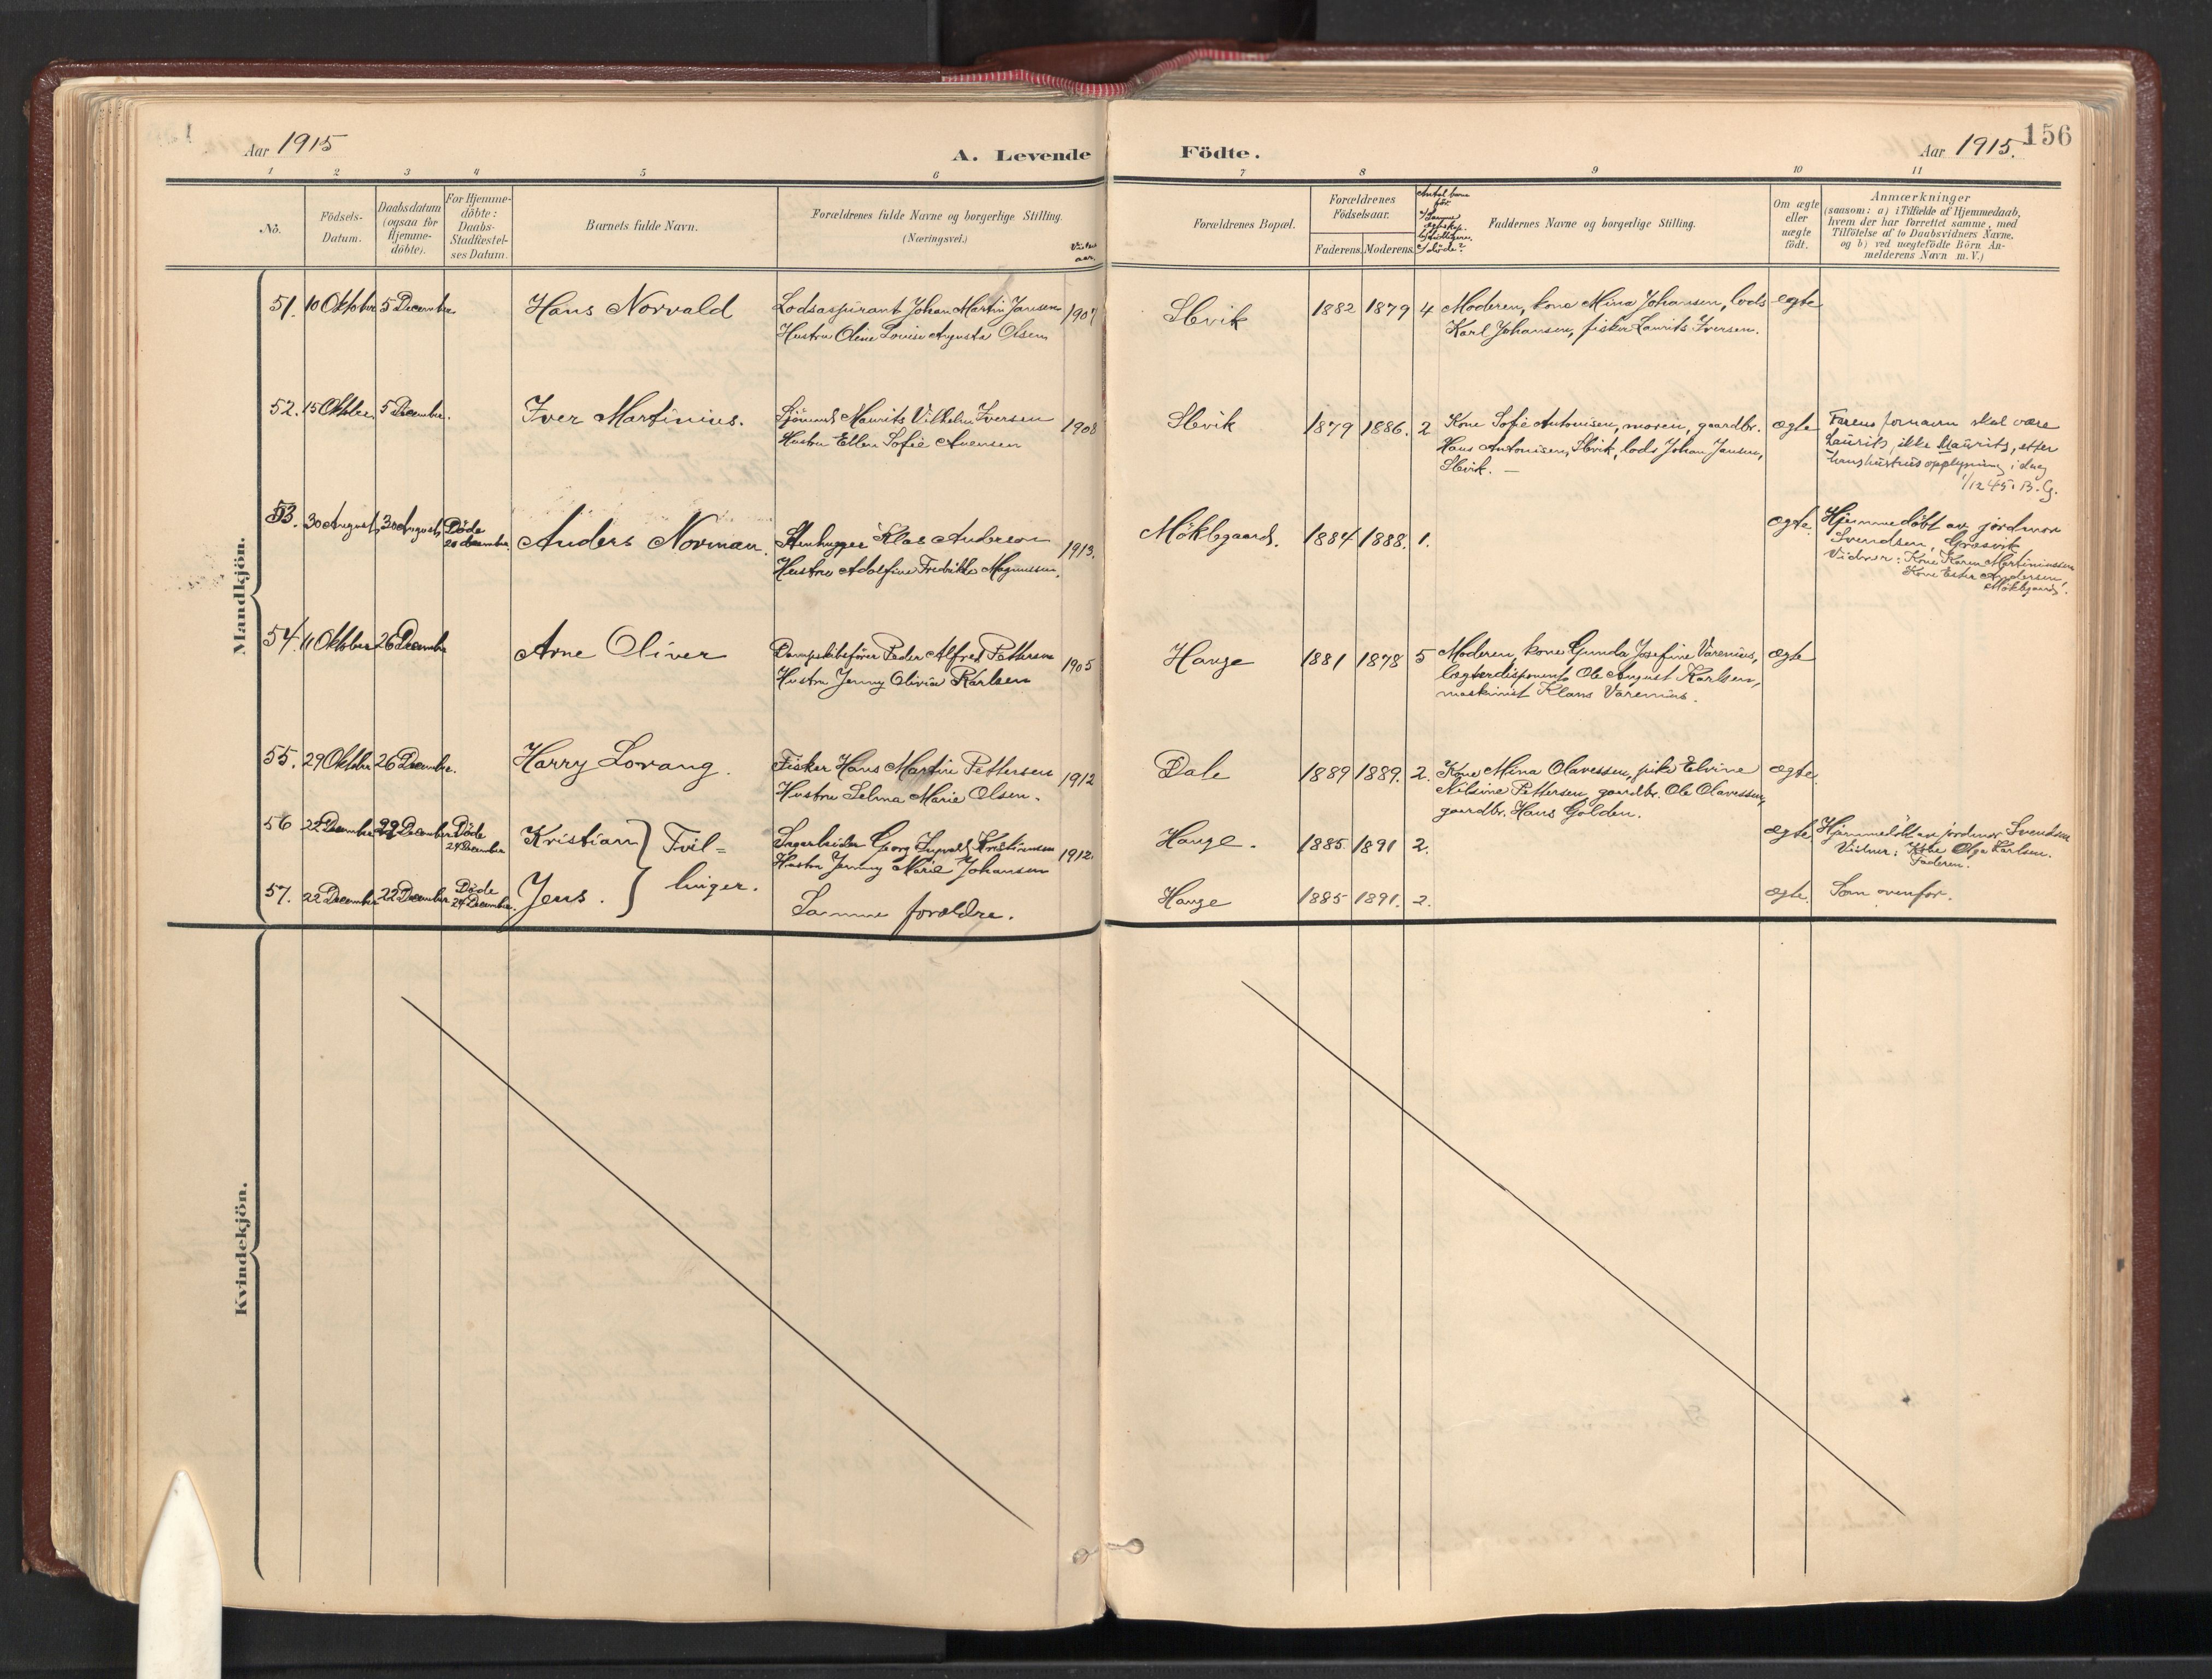 Aar 1915
A. Levende
Födte.
Aar 1915.
156
1 2 3 4 5 6
7 8 9 10 11
No.
Födsels-
Datum.
Daabsdatum
(ogsaa for
Hjemme-
döbte).
For Hjemme-
döbte:
Daabs-
Stadfæstel-
ses Datum.
Barnets fulde Navn.
Forældrenes fulde Navne og borgerlige Stilling.
(Næringsvei.)
Forældrenes Bopæl.
Forældrenes
Födselsaar.
Faderens. Moderens.
Faddernes Navne og borgerlige Stilling.
Om ægte
eller
uægte
födt.
Anmærkninger
(saasom: a) i Tilfælde af Hjemmedaab,
hvem der har forrettet samme, med
Tilföielse af to Daabsvidners Navne,
og b) ved uægtefödte Börn An-
melderens Navn m. V.)
Mandkjön.
51. 10 Oktober 5 December Hans Norvald Lodsaspirant Johan Martin Jansen 1907
Hustru Oline Louise Augusta Olsen
Slevik 1882 1879 4 Moderen, kone Mina Johansen, lods ægte
Karl Johansen, fisker Laurits Iversen.
52. 15 Oktober 5 December. Iver Martinius. Sjömand Maurits Vilhelm Iversen 1908
Hustru Ellen Sofie Evensen
Slevik 1879 1886. 2 Kone Sofie Antonisen, moren, gaardbr. ægte
Hans Antonisen, Slevik, lods Johan Jansen,
Slevik. —
Farens fornavn skal være
Laurits, ikke Maurits, efter
hans hustrus opplysning i dag
1/12 45. B. G.
53. 30 August 30 August Döde
20 december. Anders Norman. Stenhugger Klas Anderson 1913.
Hustru Adolfine Fredrikke Magnussen.
Möklegaard. 1884 1888. 1. ægte. Hjemmedöbt av jordmor
Svendsen, Græsvik
Vidner: Kone Karen Martiniussen
Kone Ester Andersen,
Möklegaard.
54. 11 Oktober 26 December Arne Oliver Dampskibsförer Peder Alfred Pettersen 1905
Hustru Jenny Olivia Karlsen
Hauge 1881 1878 5 Moderen, kone Gunda Josefine Varenius, ægte
Ole August Karlsen,
maskinist Klaus Varenius.
55. 29 Oktober 26 December. Harry Lorang. Fisker Hans Martin Pettersen 1912
Hustru Selma Marie Olsen.
Dale 1889 1889. 2. Kone Mina Olavessen, pike Elvine ægte.
Nilsine Pettersen, gaardbr. Ole Olavessen,
gaardbr. Hans Golden.
56 22 December 22 December Döde
24 December Kristian } Tvil- Georg Kristiansen 1912.
Hustru Jenny Marie Johansen
Hauge. 1885 1891 2. ægte. Hjemmedöbt av jordmor Svendsen
Vidner: Kone Olga Karlsen.
Faderen.
57. 22 December 22 December Döde
24 December. Jens. } linger. Samme forældre.
Hauge 1885 1891. 2. ægte. Som ovenfor.
Kvindekjön.